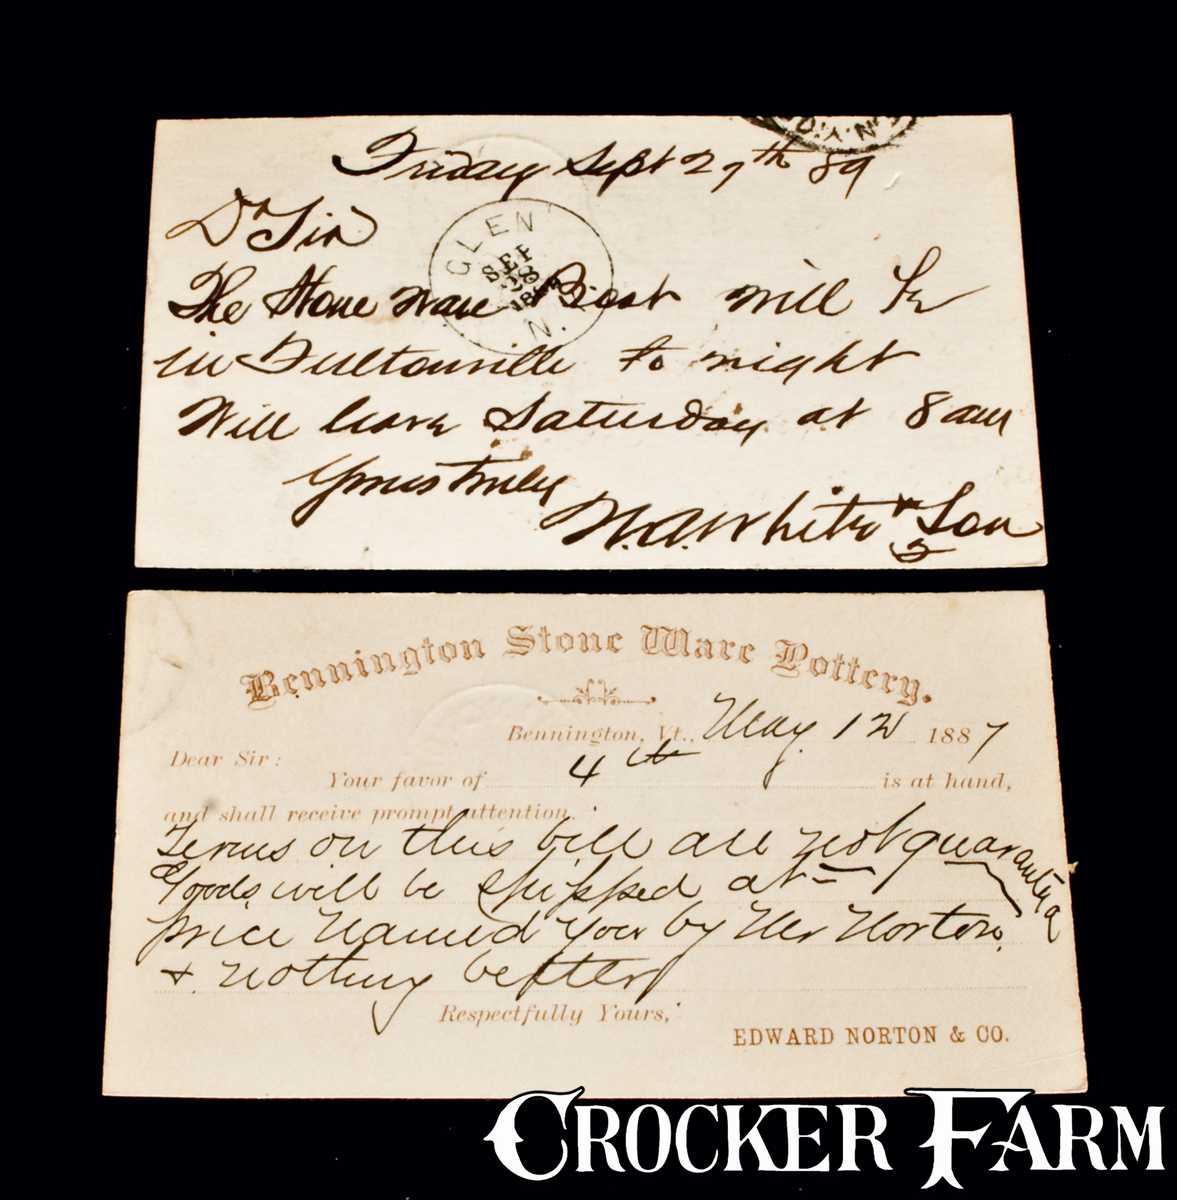 Friday Sept 27th 89
Dr Sir
GLEN
SEP
28
N.
N.Y.
The Stone Ware Boat will be
in Fultonville to night
Will leave Saturday at 8 am
Yours truly
N.A. White & Son
Bennington Stone Ware Pottery.
Bennington, Vt., May 12 1887
Dear Sir:
Your favor of 4th is at hand,
and shall receive prompt attention.
Terms on this bill are not guarantyd
Goods will be shipped at
price Named You by Mr Norton
& nothing better
Respectfully Yours,
EDWARD NORTON & CO.
CROCKER FARM